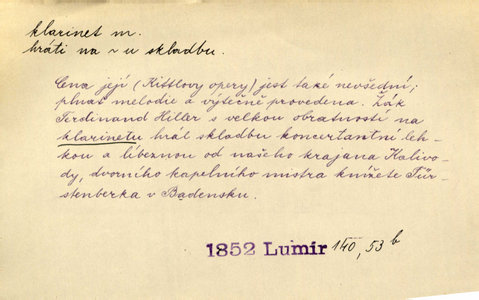 klarinet m.
hráti na ~u skladbu.
Cena její (Kittlovy opery) jest také nevšední;
plnať melodie a výtečně provedena. Žák
Ferdinand Hiller s velkou obratností na
klarinetu hrál skladbu koncertantní leh-
kou a líbeznou od našeho krajana Kalivo-
dy, dvorního kapelního mistra knížete Für-
stenberka v Badensku.
1852 Lumír 140, 53 b